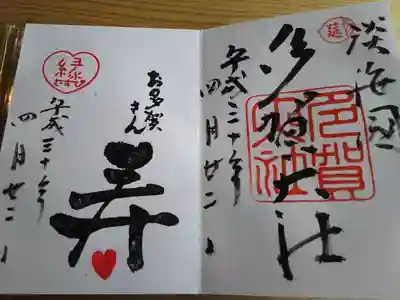 延
淡海国
多賀大社
多賀大社
平成三十年
四月廿二日
お多賀さん
寿
縁
むすび
平成三十年
四月廿二日